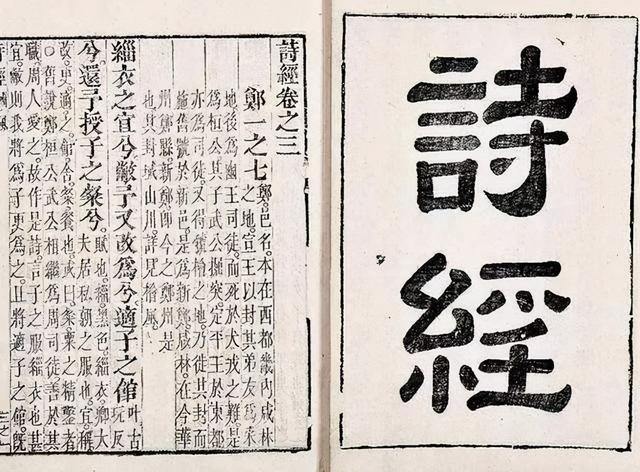 詩
經
詩經卷之三
鄭一之七
鄭邑名。本在西都畿內咸林
之地。宣王以封其弟友為采
地後為幽王司徒。而死於犬戎之難。是
為桓公。其子武公掘突定平王於東都
亦為司徒。又得虢檜之地。乃徙其封。而
施舊號於新邑。是為新鄭。咸林在今華
州鄭縣。新鄭即今之鄭州是
也。其封域山川。詳見檜風。
緇衣之宜兮。敝予又改為兮。適子之館
叶古
玩反
兮。還予授子之粲兮。
賦也。緇黑色。緇衣。卿大
夫居私朝之服也。宜。稱
改。更。適。之。館。舍。粲。餐也。或曰。粲。粟之精鑿者
○舊說鄭桓公武公相繼為周司徒。善於其
職。周人愛之。故作是詩。言子之服緇衣也甚
宜。敝則我將為子更為之。且將適子之館。既